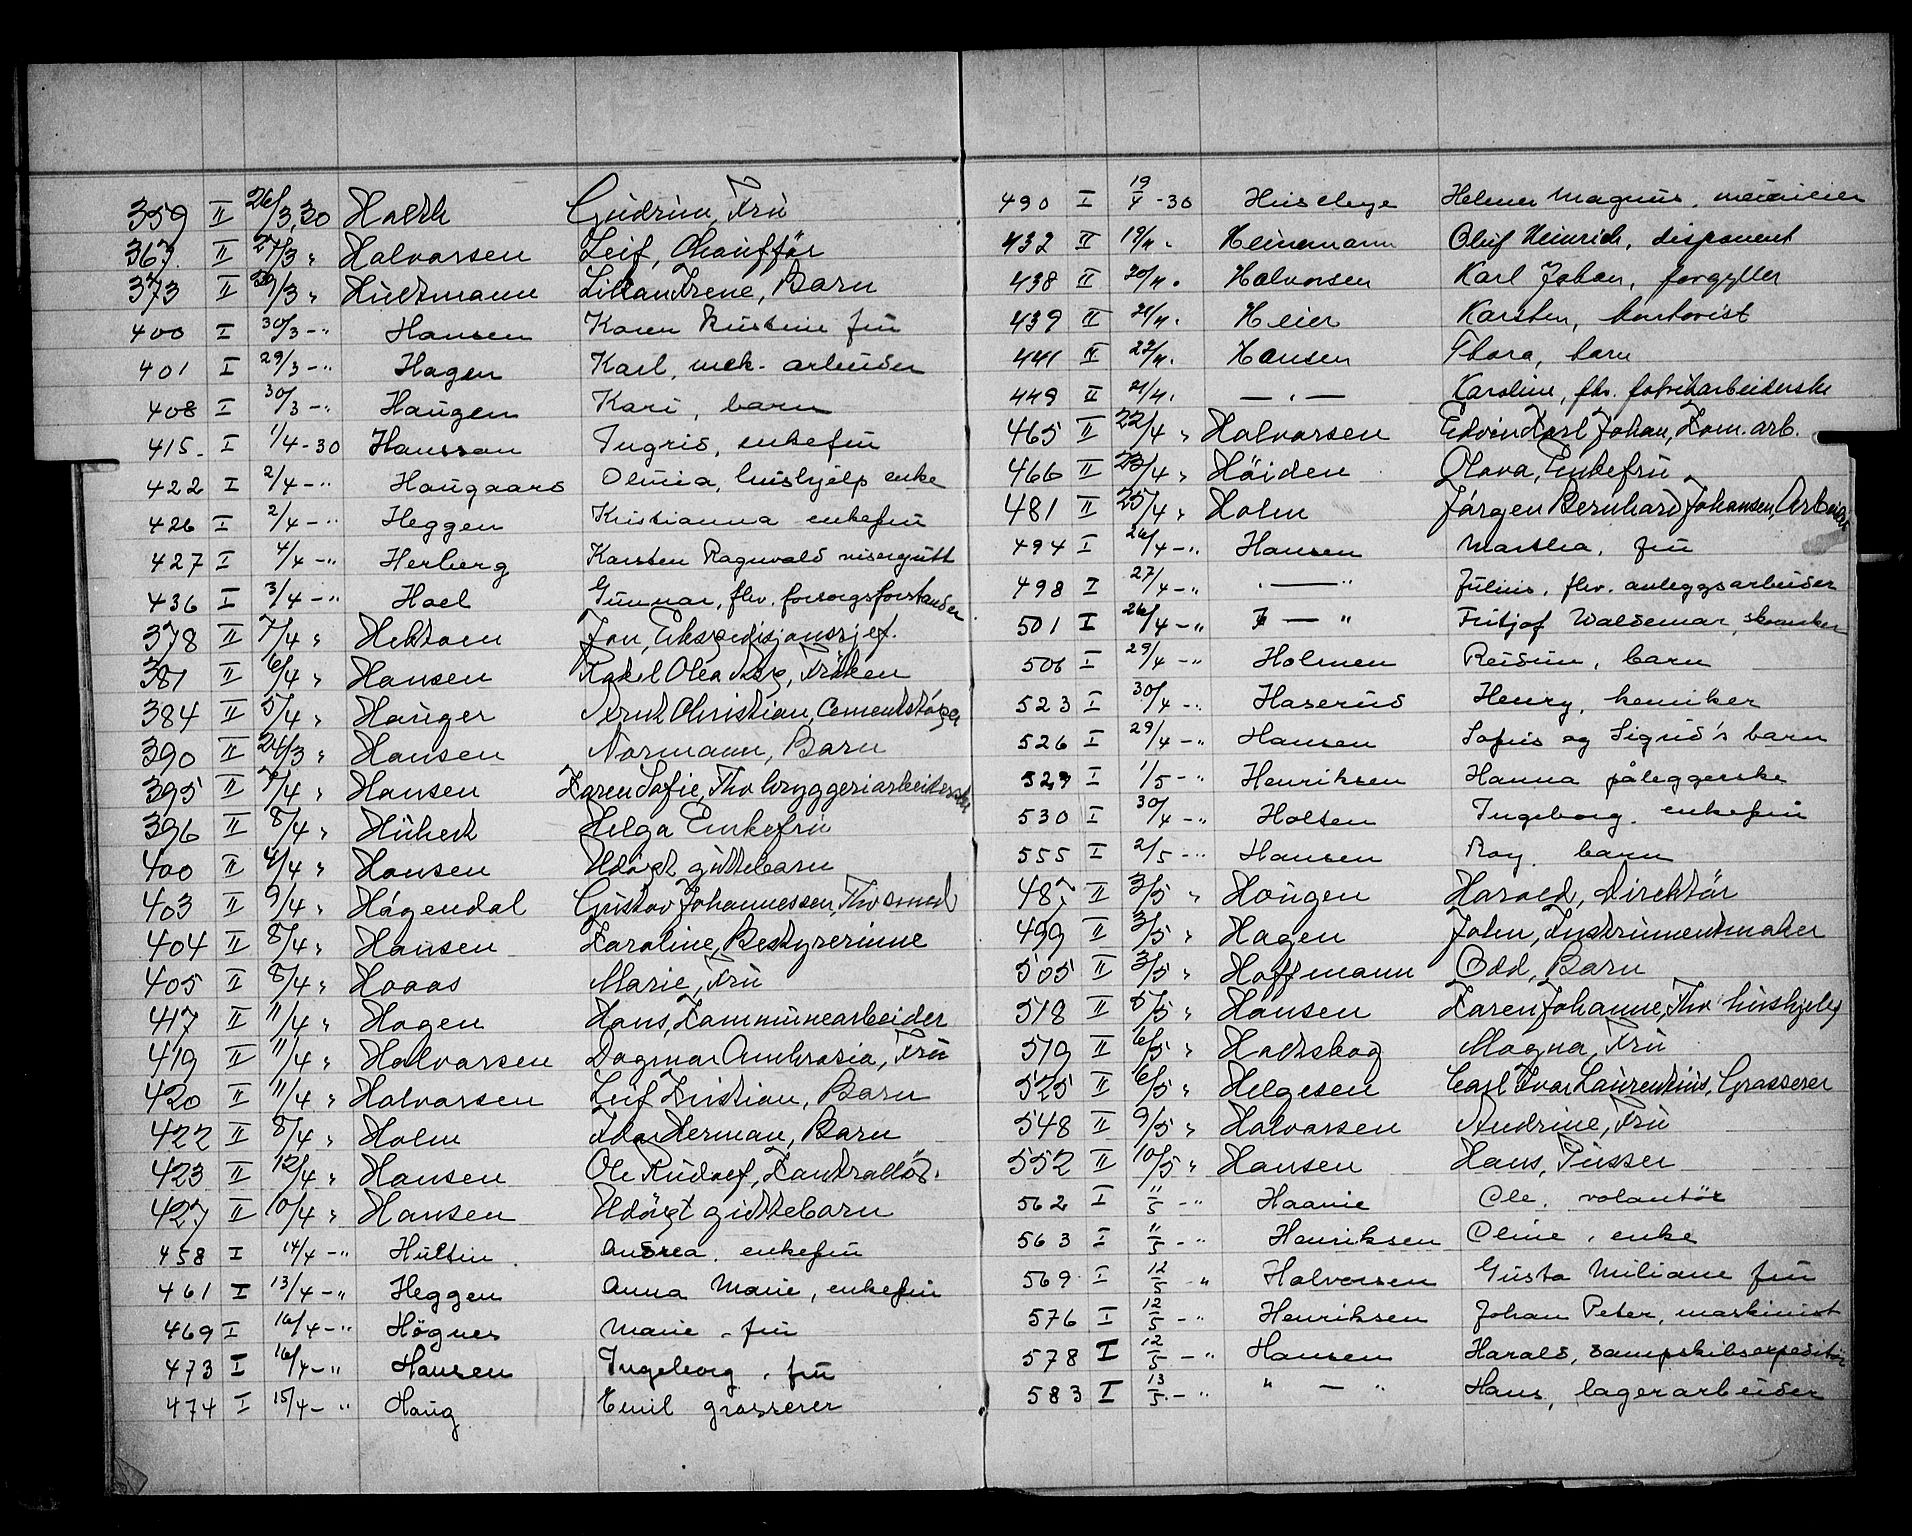 359 II 26/3.30 Holth Gudrun, Fru
363. II 27/3 " Halvorsen Leif, Chauffør
373 II 30/3 " Hultmann Lilian Irene, Barn
400 I 30/3 -" Hansen Karen Kristine fru
401 I 29/3 -" Hagen Karl, mek. arbeider
408 I 30/3 -" Haugen Kari, barn
415. I 1/4 -30 Hansson Ingrid, enkefru
422 I 2/4 -" Haugaard hushjelp enke
426 I 2/4 -" Heggen Kristianna enkefru
427 I 4/4 -" Herberg Karsten Ragnvald visergutt
436 I 3/4 -" Hoel Gunnar, fhv. forsorgsforstander
378 II 7/4 " Hektoen Jon, Ekspedisjonssjef.
381 II 6/4 " Hansen Rakel Olea Frøken
384 II 5/4 " Hauger Bernt Christian, Cementstøper
390 II 24/3 " Hansen Normann, Barn
395 II 7/4 " Hansen Karen Sofie, Fhv bryggeriarbeiderske
396 II 8/4 " Helga Enkefru
400 II 4/4 " Hansen Udøpt guttebarn
403 II 9/4 " Hågendal Gustav Johannessen, Fhv smed
404 II 8/4 " Hansen Karoline, Bestyrerinne
405 II 8/4 " Haaas Marie, Fru
417 II 11/4 " Hagen Hans, Kommunearbeider
419 II 11/4 " Halvorsen Dagmar Ambrosia, Fru
420 II 11/4 " Halvorsen Leif Kristian, Barn
422 II 8/4 " Holm Herman, Barn
423 II 12/4 " Hansen Ole Rudolf, Kontrollør.
427 II 10/4 " Hansen Udøpt guttebarn
458 I 14/4 -" Hultin Andrea. enkefru
461 I 13/4 -" Heggen Anna Marie, enkefru
469 I 16/4 -" Høgnes Marie, fru
473 I 16/4 -" Hansen Ingeborg, fru
474 I 15/4 - " Haug Emil grosserer
490 I 19/4 -30 Helmer Magnus,
432 II 19/4 " Heinemann Oluf Heinrich, disponent
438 II 20/4 " Halvorsen Karl Johan, forgyller
439 II 21/4. Heier Karsten, kontorist
441 II 22/4. Hansen Thora, barn
449 II 21/4. — " — Karoline, fhv. fabrikarbeiderske
465 II 22/4 " Halvorsen Edvin Karl Johan, Kom. arb.
466 II 23/4 " Høiden Olava, Enkefru
481 II 25/4 " Holm Jørgen Bernhard Johansen, Arbeider
494 I 26/4 -" Hansen Martha, fru
498 I 27/4 -" " — " Julius, fhv. anleggsarbeider
501 I 26/4 -" " — " Fritjof Waldemar, skomaker
506 I 29/4 -" Holmen Reidun, barn
523 I 30/4 -" Haserud Henry, kemiker
526 I 29/4 -" Hansen Sofus og Sigrid's barn
529 I 1/5 -" Henriksen Hanna påleggerske
530 I 30/4 -" Holten Ingeborg. enkefru
555 I 2/5 -" Hansen Roy. barn
487 II 3/5 " Haugen Harald, Direktør
499 II 3/5 " Hagen John, Instrumentmaker
505 II 3/5 " Hoffmann Odd, Barn
518 II 5/5 " Hansen Karen Johanne, Fhv hushjelp
519 II 6/5 " Holtskog Magna, Fru
525 II 6/5 " Helgesen Carl Ivar Laurentius, Grosserer
548 II 9/5 " Halvorsen Andrine, Fru
552 II 10/5 " Hansen Hans, Pusser
562 I 11/5 -" Haavie Ole. volontør
563 I 11/5 -" Henriksen Oline, enke
569 I 12/5 -" Halvorsen Gusta Miliane fru
576 I 12/5 -" Henriksen Johan Peter, maskinist
578 I 12/5 -" Hansen Harald, dampskibsexpeditør
583 I 13/5 -" " — " Hans, lagerarbeider